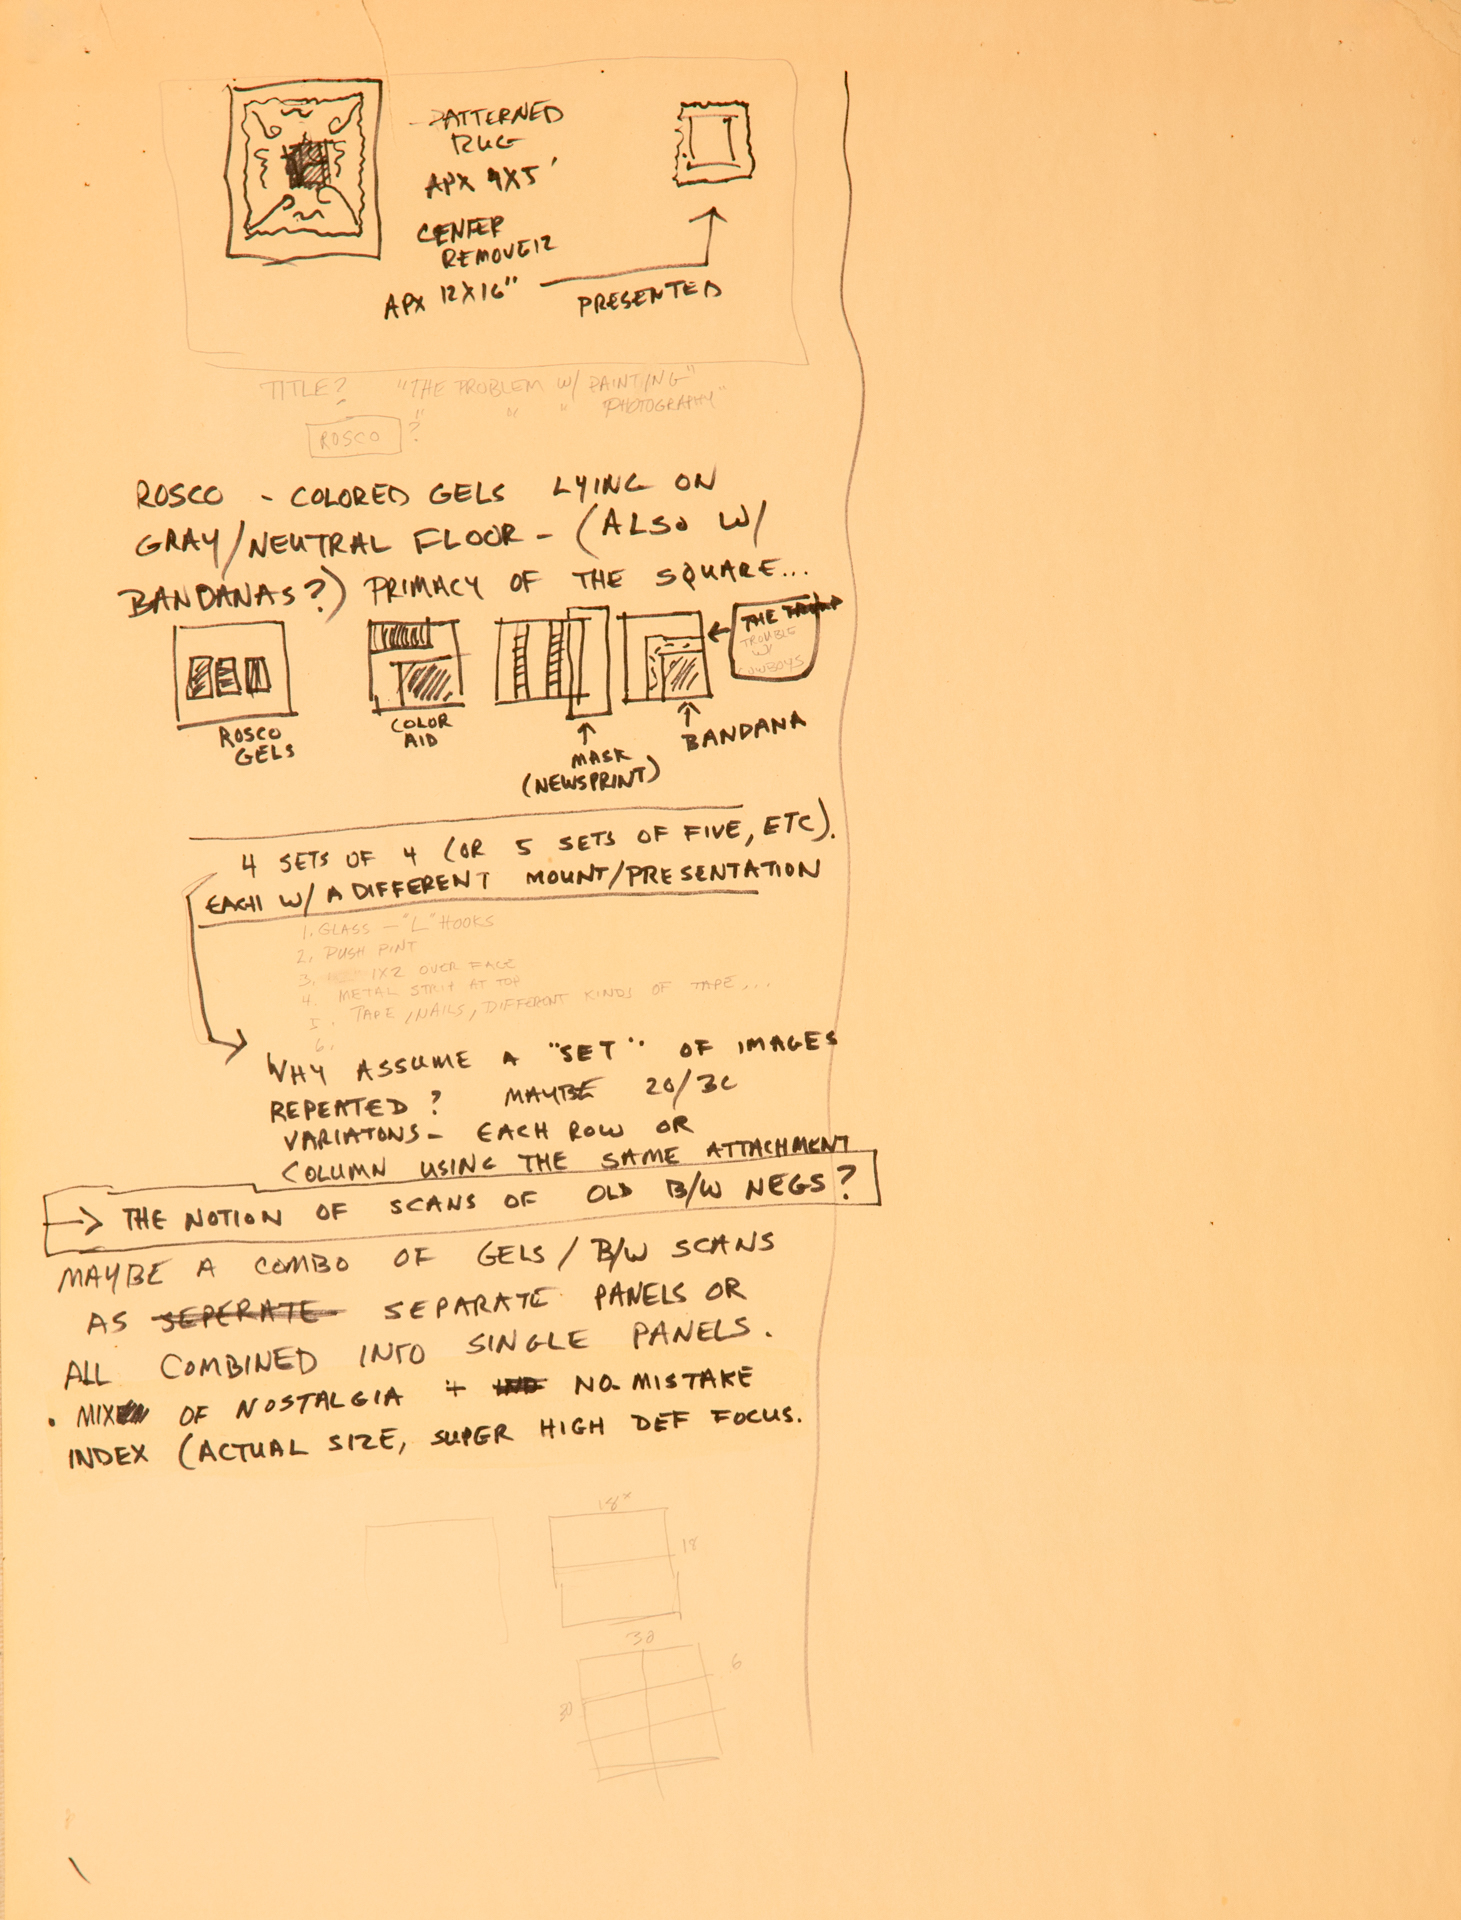 PATTERNED
RUG
APX 4X5'
CENTER
REMOVED
APX 12X16"
PRESENTED
TITLE? "THE PROBLEM W/ PAINTING"
" " " PHOTOGRAPHY"
ROSCO ?
ROSCO - COLORED GELS LYING ON
GRAY/NEUTRAL FLOOR - (ALSO W/
BANDANAS?) PRIMACY OF THE SQUARE...
THE
TROUBLE
W/
COWBOYS
ROSCO
GELS
COLOR
AID
MASK
(NEWSPRINT)
BANDANA
4 SETS OF 4 (OR 5 SETS OF FIVE, ETC).
EACH W/ A DIFFERENT MOUNT/PRESENTATION
1. GLASS - "L" HOOKS
2. PUSH PINT
3. 1X2 OVER FACE
4. METAL STRIP AT TOP
5. TAPE, NAILS, DIFFERENT KINDS OF TAPE...
6.
WHY ASSUME A "SET" OF IMAGES
REPEATED? MAYBE 20/30
VARIATONS - EACH ROW OR
COLUMN USING THE SAME ATTACHMENT
→ THE NOTION OF SCANS OF OLD B/W NEGS?
MAYBE A COMBO OF GELS / B/W SCANS
AS SEPERATE SEPARATE PANELS OR
ALL COMBINED INTO SINGLE PANELS.
• MIX OF NOSTALGIA + NO-MISTAKE
INDEX (ACTUAL SIZE, SUPER HIGH DEF FOCUS.
18"
18
30
6
20